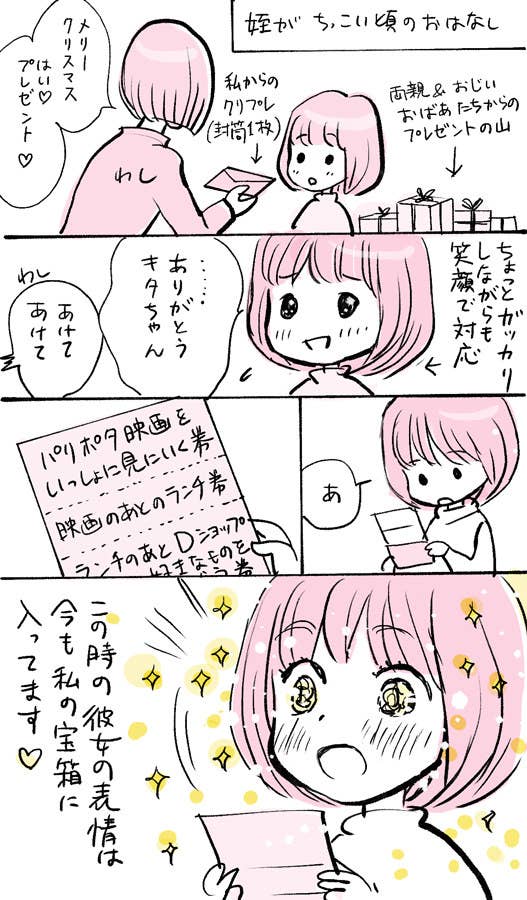 姪が ちっこい頃のおはなし
両親&おじい
おばあたちからの
プレゼントの山
私からの
クリプレ
(封筒1枚)
メリー
クリスマス
はい♡
プレゼント♡
わし
ちょっとガッカリ
しながらも
笑顔で対応
……
ありがとう
キタちゃん
わし
あけて
あけて
あ
パリポタ映画を
いっしょに見にいく券
映画のあとのランチ券
ランチのあとDショップ
好きなものを
この時の彼女の表情は
今も私の宝箱に
入ってます♡